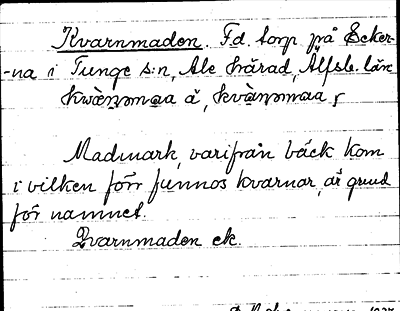 Kvarnmaden. F.d. torp på Ecker-
-na i Tunge s:n, Ale härad, Älfsb. län
Madmark, varifrån bäck kom
i vilken förr funnos kvarnar, är grund
för namnet.
Qvarnmaden ek.